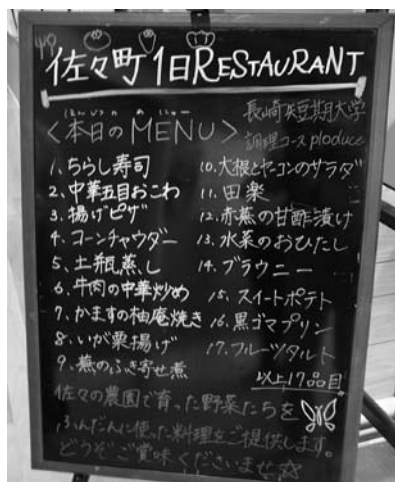 佐々町 1日RESTAURANT
ほんじつ の めにゅー
<本日のMENU>
長崎短期大学
調理コース ploduce
1. ちらし寿司
2. 中華五目おこわ
3. 揚げピザ
4. コーンチャウダー
5. 土瓶蒸し
6. 牛肉の中華炒め
7. かますの柚庵焼き
8. いが栗揚げ
9. 蕪のふき寄せ煮
10. 大根とヤーコンのサラダ
11. 田楽
12. 赤蕪の甘酢漬け
13. 水菜のおひたし
14. ブラウニー
15. スイートポテト
16. 黒ゴマプリン
17. フルーツタルト
以上17品目
佐々の農園で育った野菜たちを
ふんだんに使った料理をご提供します。
どうぞご賞味くださいませ☆